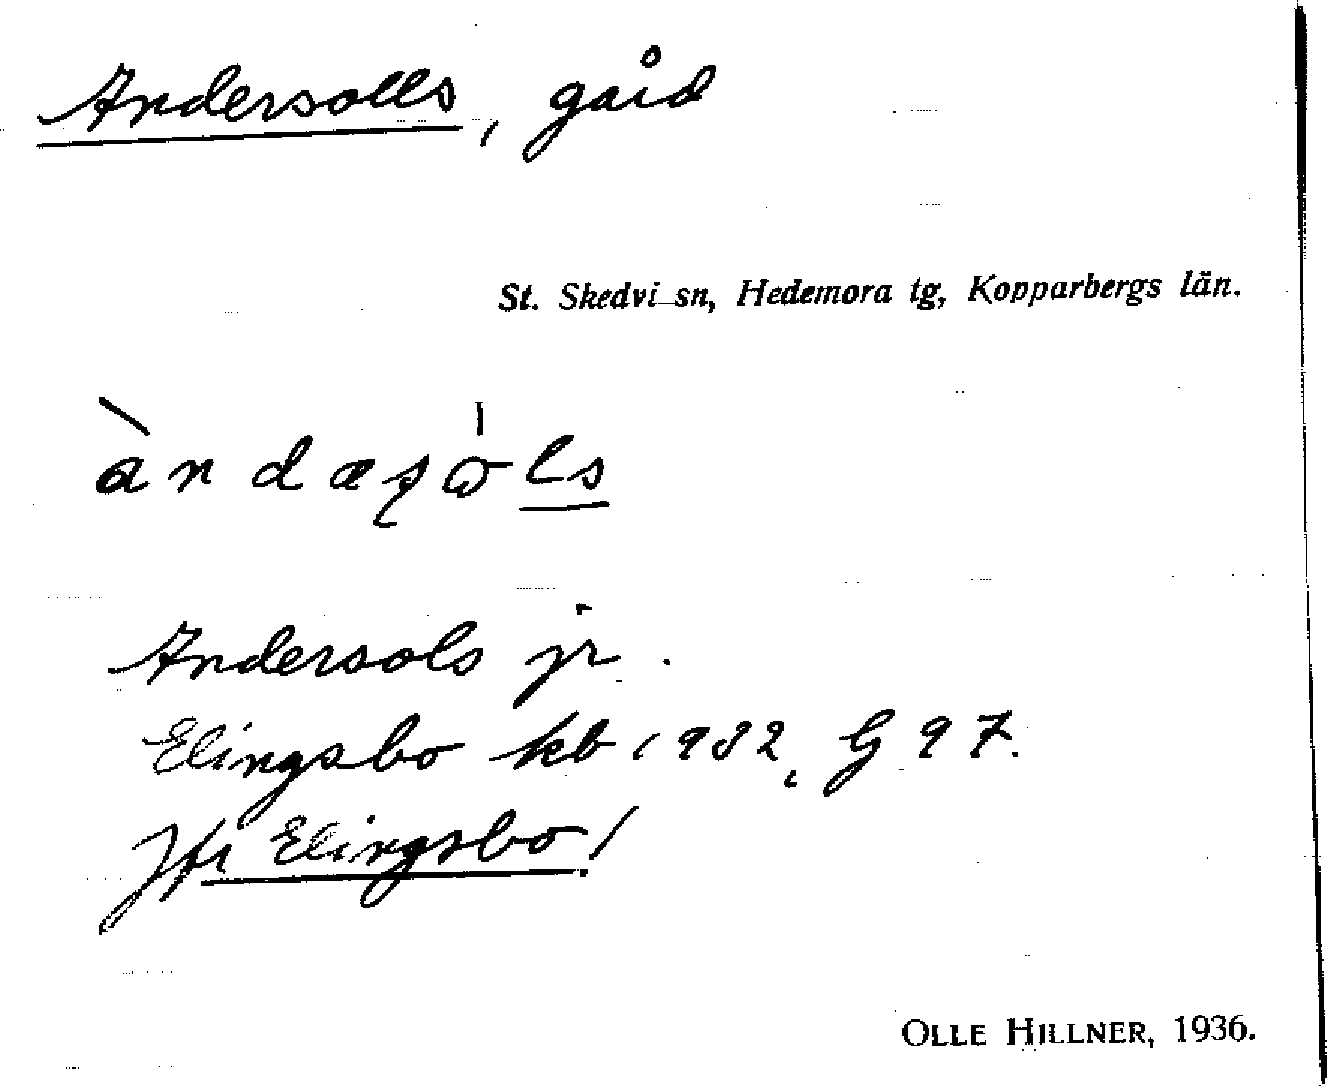 Andersolls, gård
St. Skedvi sn, Hedemora tg, Kopparbergs län.
Andersols jr.
Elingsbo kb 1932, G 97.
Jfr Elingsbo!
OLLE HILLNER, 1936.